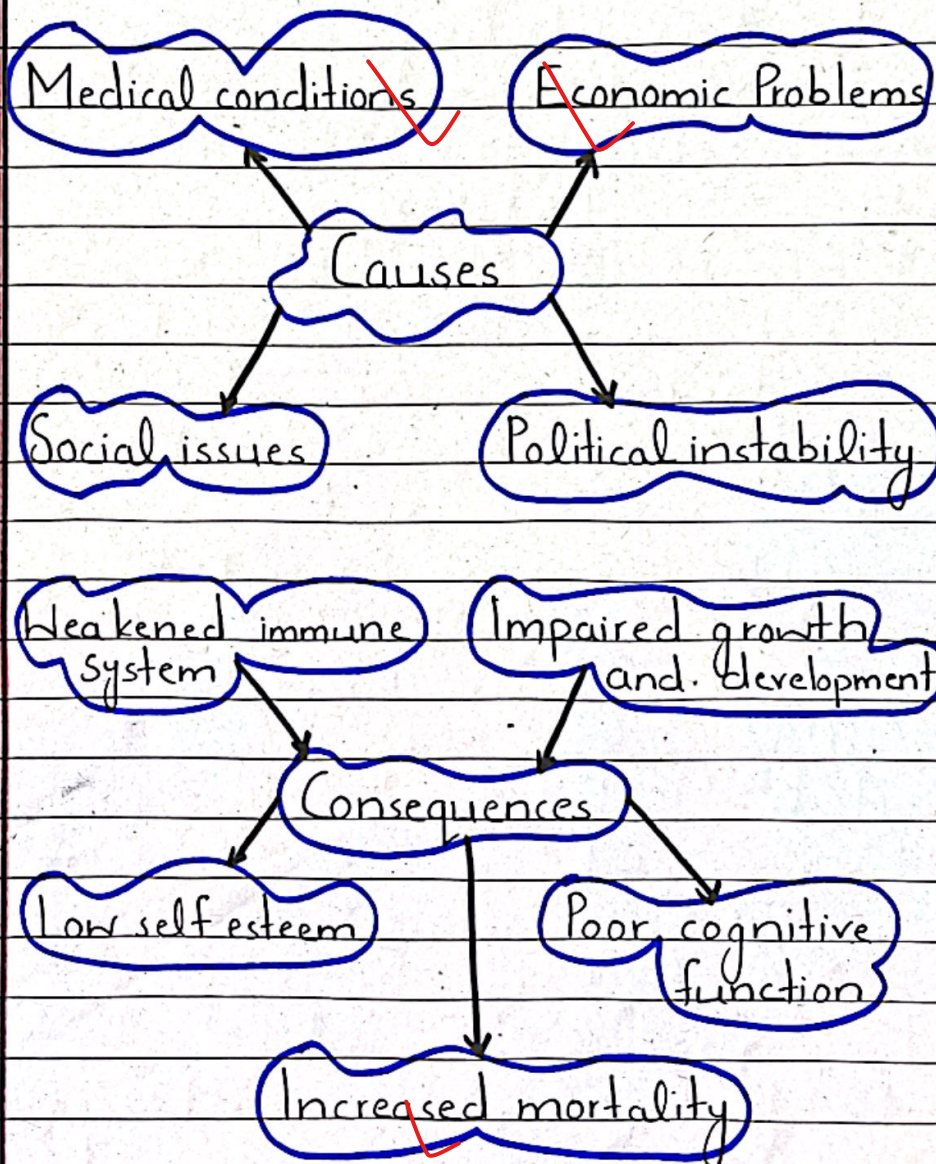 Medical conditions
Economic Problems
Causes
Social issues
Political instability
Weakened immune
system
Impaired growth
and. development
Consequences
Low self esteem
Poor cognitive
function
Increased mortality